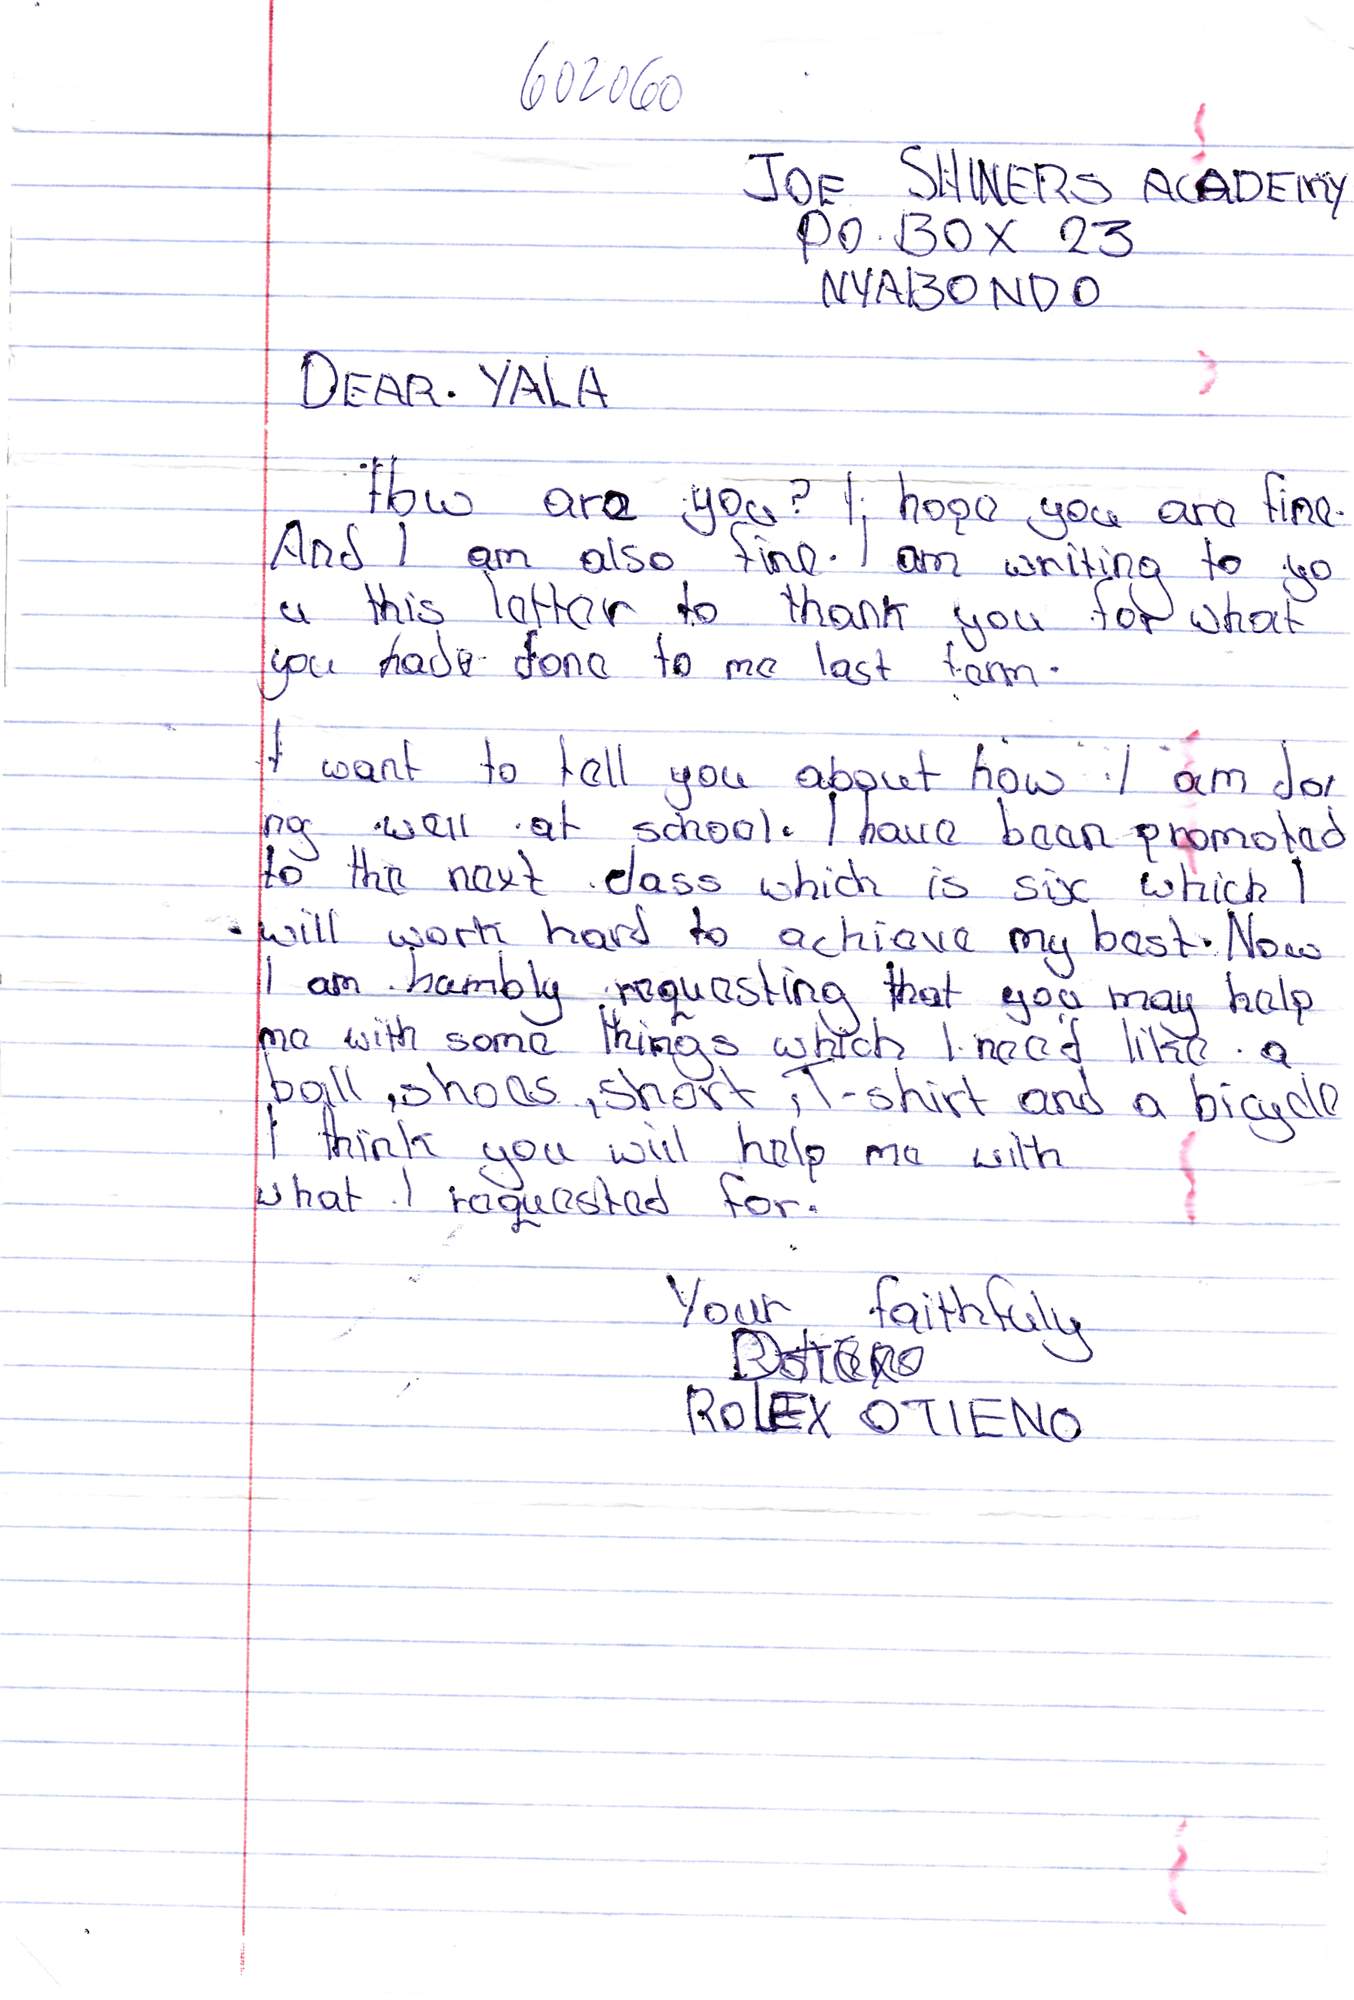 602060
JOE SHINERS ACADEMY
PO. BOX 23
NYABONDO
DEAR. YALA
How are you? I hope you are fine.
And I am also fine. I am writing to yo
u this letter to thank you for what
you have done to me last term.
I want to tell you about how I am doi
ng well at school. I have been promoted
to the next class which is six which I
will work hard to achieve my best. Now
I am hambly requesting that you may help
me with some things which I need like a
ball, shoes, short, T-shirt and a bicycle
I think you will help me with
what I requested for.
Your faithfuly
ROLEX OTIENO